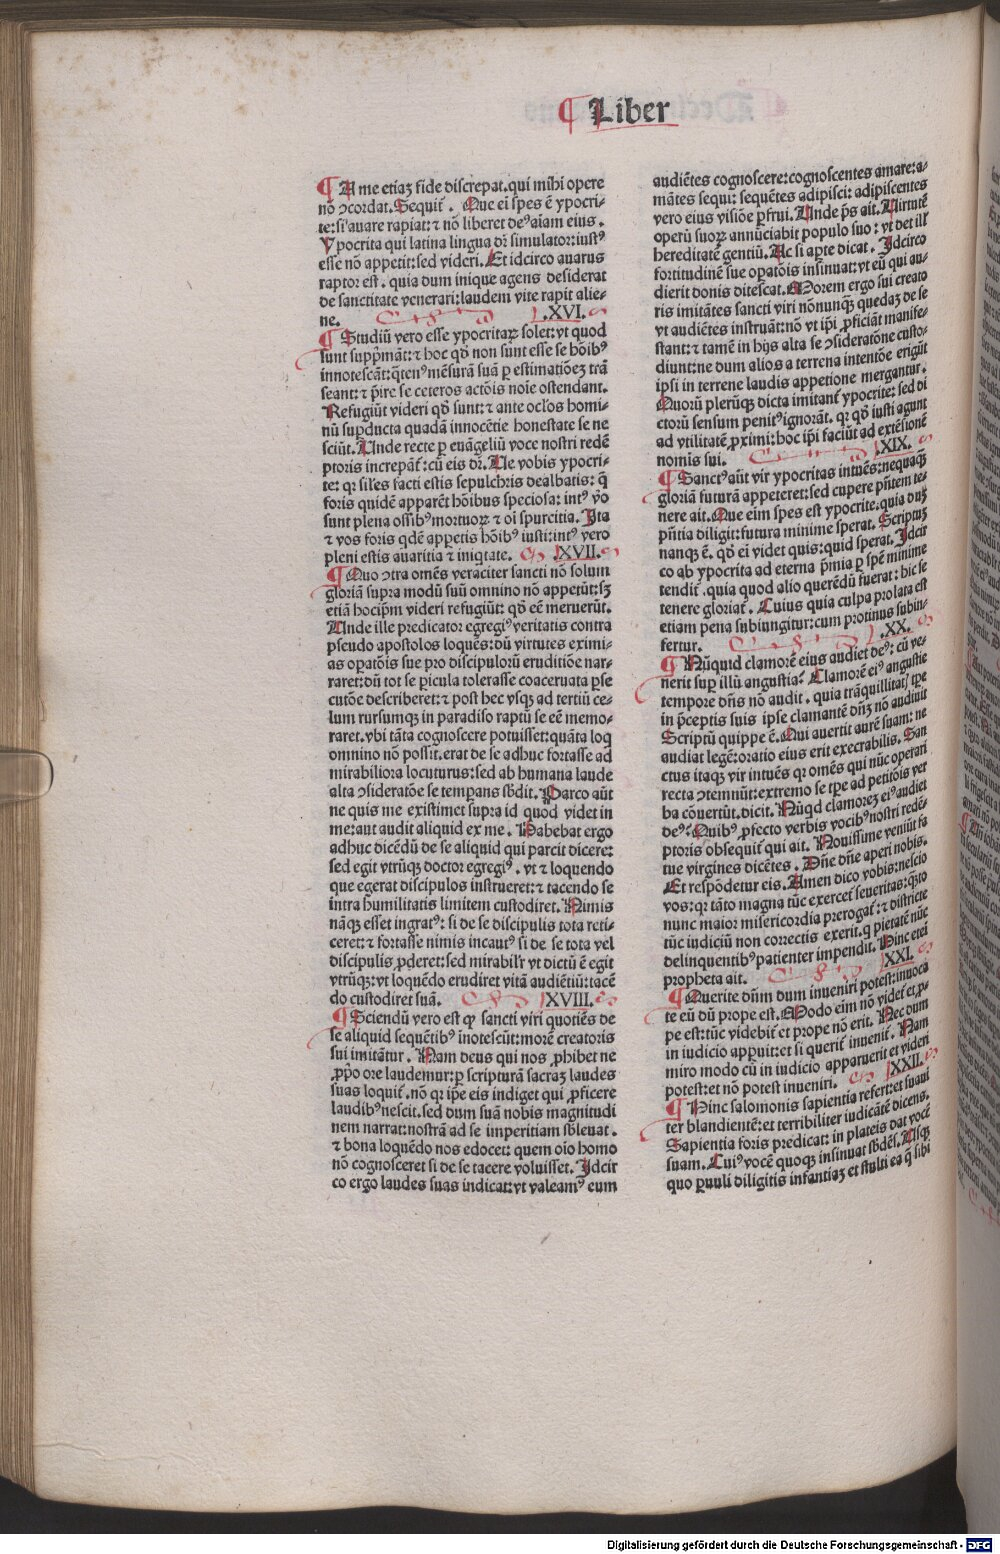 Liber
A me etiaꝫ fide discrepat. qui mihi opere
nō ↄcordat. Sequit̄. Que ei spes ē ypocri⸗
te: si auare rapiat: ⁊ nō liberet deꝰ aīam eius.
Ypocrita qui latina lingua dr̄ simulator: iustꝰ
esse nō appetit: sed videri. Et idcirco auarus
raptor est. quia dum inique agens desiderat
de sanctitate venerari: laudem vite rapit alie⸗
ne. .XVI.
Studiū vero esse ypocritaꝝ solet: vt quod
sunt supp̄māt: ⁊ hoc qd̄ non sunt esse se hōibꝰ
innotescāt: q̄tenꝰ mēsurā suā ꝑ estimatiōeꝫ trā
seant: ⁊ p̄ire se ceteros actōis noīe ostendant.
Refugiūt videri qd̄ sunt: ⁊ ante ocl'os homi⸗
nū suꝑducta quadā innocētie honestate se ne
sciūt. Unde recte ꝑ euāgeliū voce nostri redē
ptoris increpāt̄: cū eis dr̄. Ue vobis ypocri⸗
te: qꝛ sil'es facti estis sepulchris dealbatis: q̄
foris quidē apparēt hōibus speciosa: intꝰ v̄o
sunt plena ossibꝰ mortuoꝝ ⁊ oī spurcitia. Ita
⁊ vos foris qdē appetis hōibꝰ iusti: intꝰ vero
pleni estis auaritia ⁊ iniqtate. .XVII.
Quo ↄtra omēs veraciter sancti nō solum
gloriā supra modū suū omnino nō appetūt: sꝫ
etiā hocip̄m videri refugiūt: qd̄ eē meruerūt.
Unde ille predicator egregiꝰ veritatis contra
pseudo apostolos loquēs: dū virtutes eximi⸗
as opatōis sue pro discipulorū eruditiōe nar⸗
raret: dū tot se pericula tolerasse coaceruata ꝑse
cutōe describeret: ⁊ post hec vsqꝫ ad tertiū ce⸗
lum rursumqꝫ in paradiso raptū se eē memo⸗
raret. vbi tāta cognoscere potuisset: quāta loq
omnino nō possit. erat de se adhuc fortasse ad
mirabiliora locuturus: sed ab humana laude
alta ↄsideratōe se temꝑans sb̄dit. Parco aūt
ne quis me existimet supra id quod videt in
me: aut audit aliquid ex me. Habebat ergo
adhuc dicēdū de se aliquid qui parcit dicere:
sed egit vtrūqꝫ doctor egregiꝰ. vt ⁊ loquendo
que egerat discipulos instrueret: ⁊ tacendo se
intra humilitatis limitem custodiret. Nimis
nāqꝫ esset ingratꝰ: si de se discipulis tota reti⸗
ceret: ⁊ fortasse nimis incautꝰ si de se tota vel
discipulis ꝓderet: sed mirabilr̄ vt dictū ē egit
vtrūqꝫ: vt loquēdo erudiret vitā audiētiū: tacē
do custodiret suā. XVIII.
Sciendū vero est ꝙ sancti viri quotiēs de
se aliquid sequētibꝰ inotescūt: morē creatoris
sui imitātur. Nam deus qui nos ꝓhibet ne
ꝓp̄o ore laudemur: ꝑ scripturā sacraꝫ laudes
suas loquit̄. nō qꝛ ip̄e eis indiget qui ꝓficere
laudibꝰ nescit. sed dum suā nobis magnitudi
nem narrat: nostrā ad se imperitiam sb̄leuat.
⁊ bona loquēdo nos edocet: quem oīo homo
nō cognosceret si de se tacere voluisset. Idcir
co ergo laudes suas indicat: vt valeamꝰ eum
audiētes cognoscere: cognoscentes amare: a⸗
mātes sequi: sequētes adipisci: adipiscentes
vero eius visiōe ꝑfrui. Unde ꝓs ait. Uirtutē
operū suoꝝ annūciabit populo suo: vt det ill'
hereditatē gentiū. Ac si aꝑte dicat. Idcirco
fortitudinē sue opatōis insinuat: vt eū qui au⸗
dierit donis ditescat. Morem ergo sui creato
ris imitātes sancti viri nōnunqꝫ quedaꝫ de se
vt audiētes instruāt: nō vt ip̄i ꝓficiāt manife⸗
stant: ⁊ tamē in hijs alta se ↄsideratōne custo⸗
diunt: ne dum alios a terrena intentōe erigūt
ipsi in terrene laudis appetione mergantur.
Quorū plerūqꝫ dicta imitant̄ ypocrite: sed di
ctorū sensum penitꝰ ignorāt. qꝛ qd̄ iusti agunt
ad vtilitatē ꝓximi: hoc ip̄i faciūt ad extēsionē
nomīs sui. .XIX.
Sanctꝰ aūt vir ypocritas intuēs: nequaqꝫ
gloriā futurā appeteret: sed cupere p̄ntem te⸗
nere ait. Que eim spes est ypocrite. quia duꝫ
p̄ntia diligit: futura minime sperat. Scriptuꝫ
nanqꝫ ē. qd̄ ei videt quis: quid sperat. Idcir
co ab ypocrita ad eterna p̄mia ꝑ spē minime
tendit̄. quia quod alio querēdū fuerat: hic se
tenere gloriat̄. Cuius quia culpa prolata est
etiam pena subiungitur: cum protinus subin⸗
fertur. .XX.
Nūquid clamorē eius audiet deꝰ: cū ve⸗
nerit suꝑ illū angustia? Clamorē eiꝰ angustie
tempore dn̄s nō audit. quia trāquillitat] tꝑe
in p̄ceptis suis ipse clamantē dn̄ꝫ nō audiuit
Scriptū quippe ē. Qui auertit aurē suam: ne
audiat legē: oratio eius erit execrabilis. San
ctus itaqꝫ vir intuēs qꝛ omēs qui nūc operari
recta ↄtemnūt: extremo se tꝑe ad petitōis ver
ba cōuertūt. dicit. Nūqd clamoreꝫ eiꝰ audiet
deꝰ? Quibꝰ ꝓfecto verbis vocibꝰ nostri redē⸗
ptoris obsequit̄ qui ait. Nouissime veniūt fa
tue virgines dicētes. Dn̄e dn̄e aperi nobis.
Et respōdetur eis. Amen dico vobis: nescio
vos: qꝛ tāto magna tūc exercet̄ seueritas: q̄to
nunc maior misericordia prerogat̄: ⁊ districte
tūc iudiciū non correctis exerit. q̄ pietatē nūc
delinquentibꝰ patienter impendit. Hinc etei
propheta ait. XXI.
Querite dn̄m dum inueniri potest: inuoca
te eū dū prope est. Modo eim nō videt̄ et ꝓ⸗
pe est: tūc videbit̄ et prope nō erit. Nec dum
in iudicio appuit: et si querit̄ inuenit̄. Nam
miro modo cū in iudicio apparuerit et videri
potest: et nō potest inueniri. XXII.
Hinc salomonis sapientia refert: et suaui
ter blandientē: et terribiliter iudicātē dicens.
Sapientia foris predicat: in plateis dat vocē
suam. Cuiꝰ vocē quoqꝫ insinuat sb̄dēs. Usqꝫ
quo ꝑuuli diligitis infantiaꝫ et stulti ea q̄ sibi
Digitalisierung gefördert durch die Deutsche Forschungsgemeinschaft - DFG